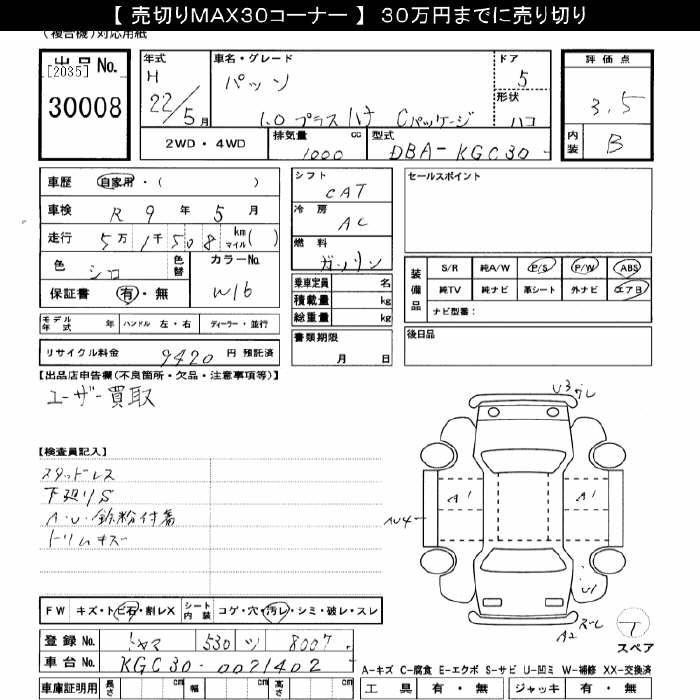 【 売切りMAX30コーナー 】 30万円までに売り切り
(複合機)対応用紙
出品 No.
[2035]
30008
年式
H
22/5月
車名・グレード
パッソ
1.0 プラスハナ Cパッケージ
ドア
5
形状
ハコ
評価点
3.5
内装
B
2WD・4WD
排気量
1000 cc
型式
DBA-KGC30
車歴 自家用・( )
車検 R 9 年 5 月
走行 5万 1千 508 km マイル( )
色 シロ 色替
カラーNo.
W16
保証書 有・無
シフト
CAT
冷房
AC
燃料
ガソリン
乗車定員 名
積載量 kg
総重量 kg
書類期限
月 日
セールスポイント
装備品
S/R 純A/W P/S P/W ABS
純TV 純ナビ 革シート 外ナビ エアB
ナビ型番:
後日品
モデル年式 年 ハンドル 左・右 ディーラー・並行
リサイクル料金 9420 円 預託済
【出品店申告欄(不良箇所・欠品・注意事項等)】
ユーザー買取
【検査員記入】
スタッドレス
下廻りS
A・U・鉄粉付着
トリムキズ
U3 ズレ
A1
A1
AU4
U1
A2 ズレ
T
スペア
FW キズ・トビ石・割レX シート内装 コゲ・穴・汚レ・シミ・破レ・スレ
登録 No. トヤマ 530 ツ 8007
車台 No. KGC30-0021402
A-キズ C-腐食 E-エクボ S-サビ U-凹ミ W-補修 XX-交換済
車庫証明用 長さ cm 幅 cm 高さ cm
工具 有・無 ジャッキ 有・無